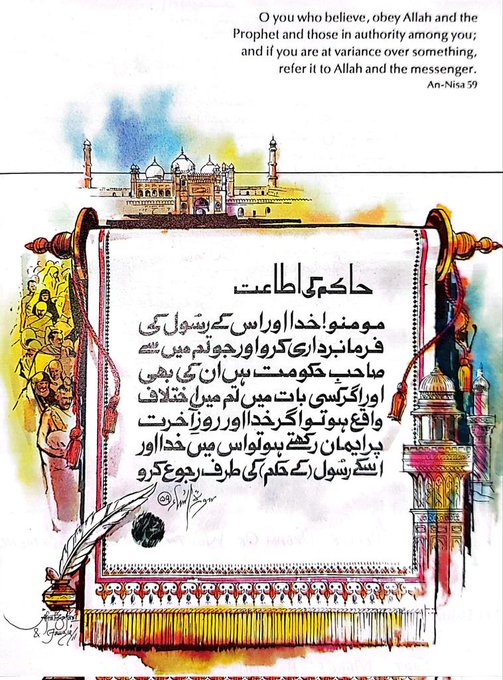 O you who believe, obey Allah and the
Prophet and those in authority among you;
and if you are at variance over something,
refer it to Allah and the messenger.
An-Nisa 59
حاکم کی اطاعت
مومنو! خدا اور اس کے رسُول کی
فرمانبرداری کرو اور جو تم میں سے
صاحبِ حکومت ہیں ان کی بھی
اور اگر کسی بات میں تم میں اختلاف
واقع ہو تو اگر خدا اور روزِ آخرت
پر ایمان رکھتے ہو تو اس میں خدا اور
اسکے رسُول (کے حکم) کی طرف رجوع کرو
سورۃ النساء ۵۹